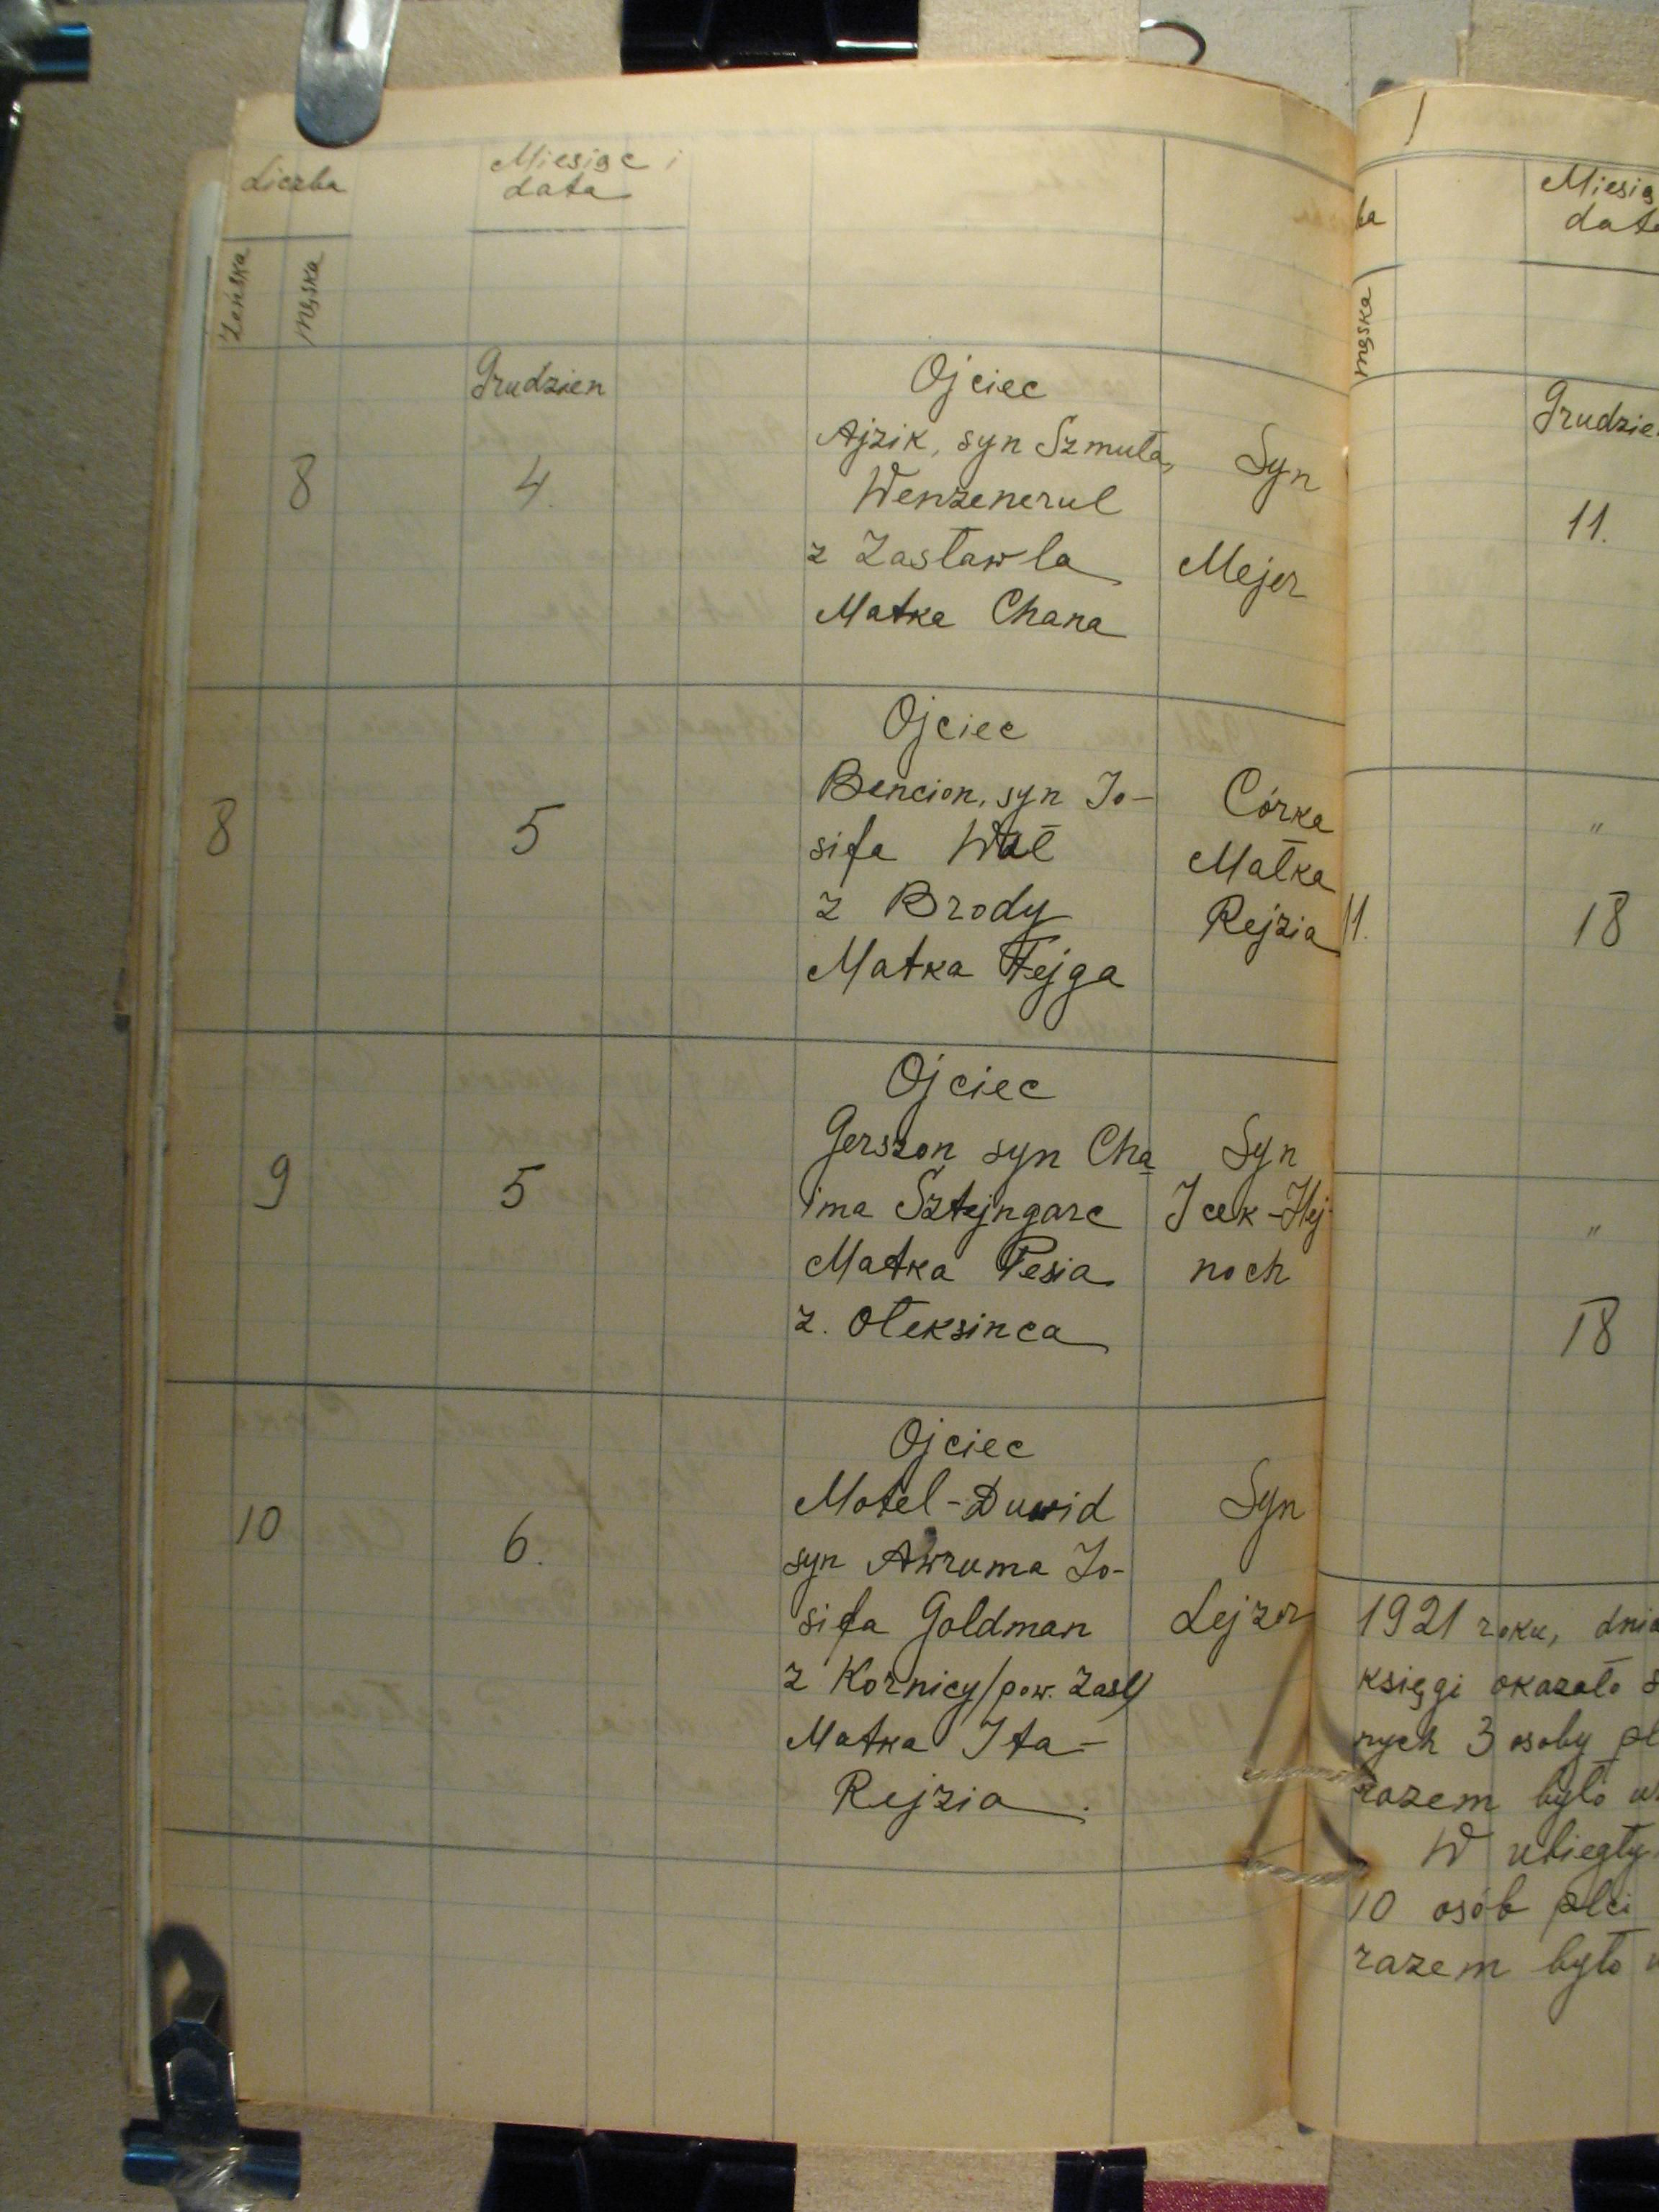 Liczba
Miesiąc i
data
żeńska
męska
Grudzien
8
4.
Ojciec
Ajzik, syn Szmula,
Wenzenerul
z Zasławla
Matka Chana
Syn
Mejer
8
5
Ojciec
Bencion, syn Jo-
sifa Wał
z Brody
Matka Fejga
Córka
Małka
Rejzia
9
5
Ojciec
Gerszon syn Cha
ima Sztejngarc
Matka Pesia
z. Oleksinca
Syn
Icek-Hej-
noch
10
6.
Ojciec
Motel-Duwid
syn Awruma Jo-
sifa Goldman
z Kornicy/pow. Zasł/
Matka Ita-
Rejzia.
Syn
Lejzer
ba
Miesią
data
męska
Grudzie
11.
"
11.
18
"
18
1921 roku, dnia
księgi okazało s
nych 3 osoby pł
razem było w
W ubiegły
10 osób płci
razem było w